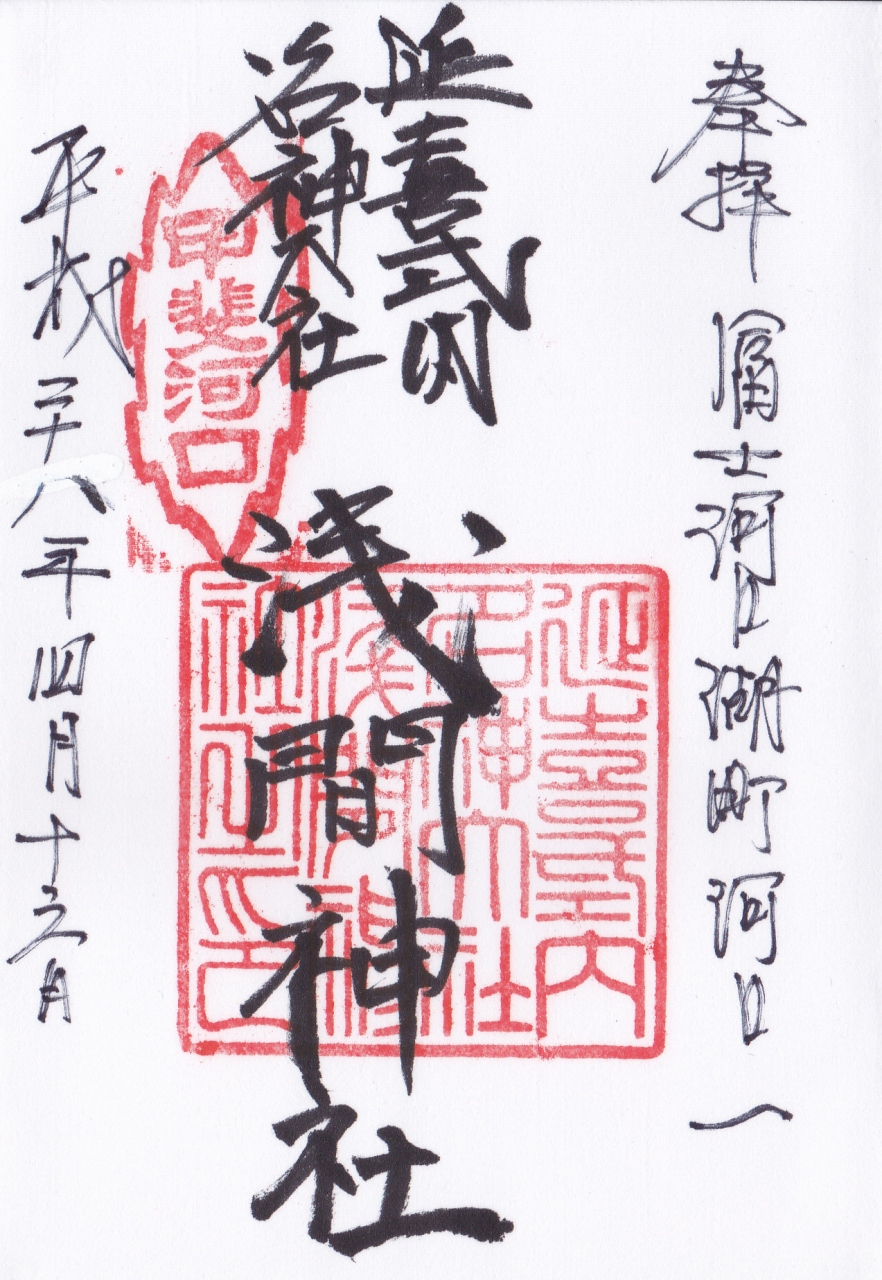 奉拝 冨士河口湖町河口一
延喜式内
名神大社
浅間神社
平成二十八年四月十三日
甲斐河口
延喜式内
名神大社
浅間神